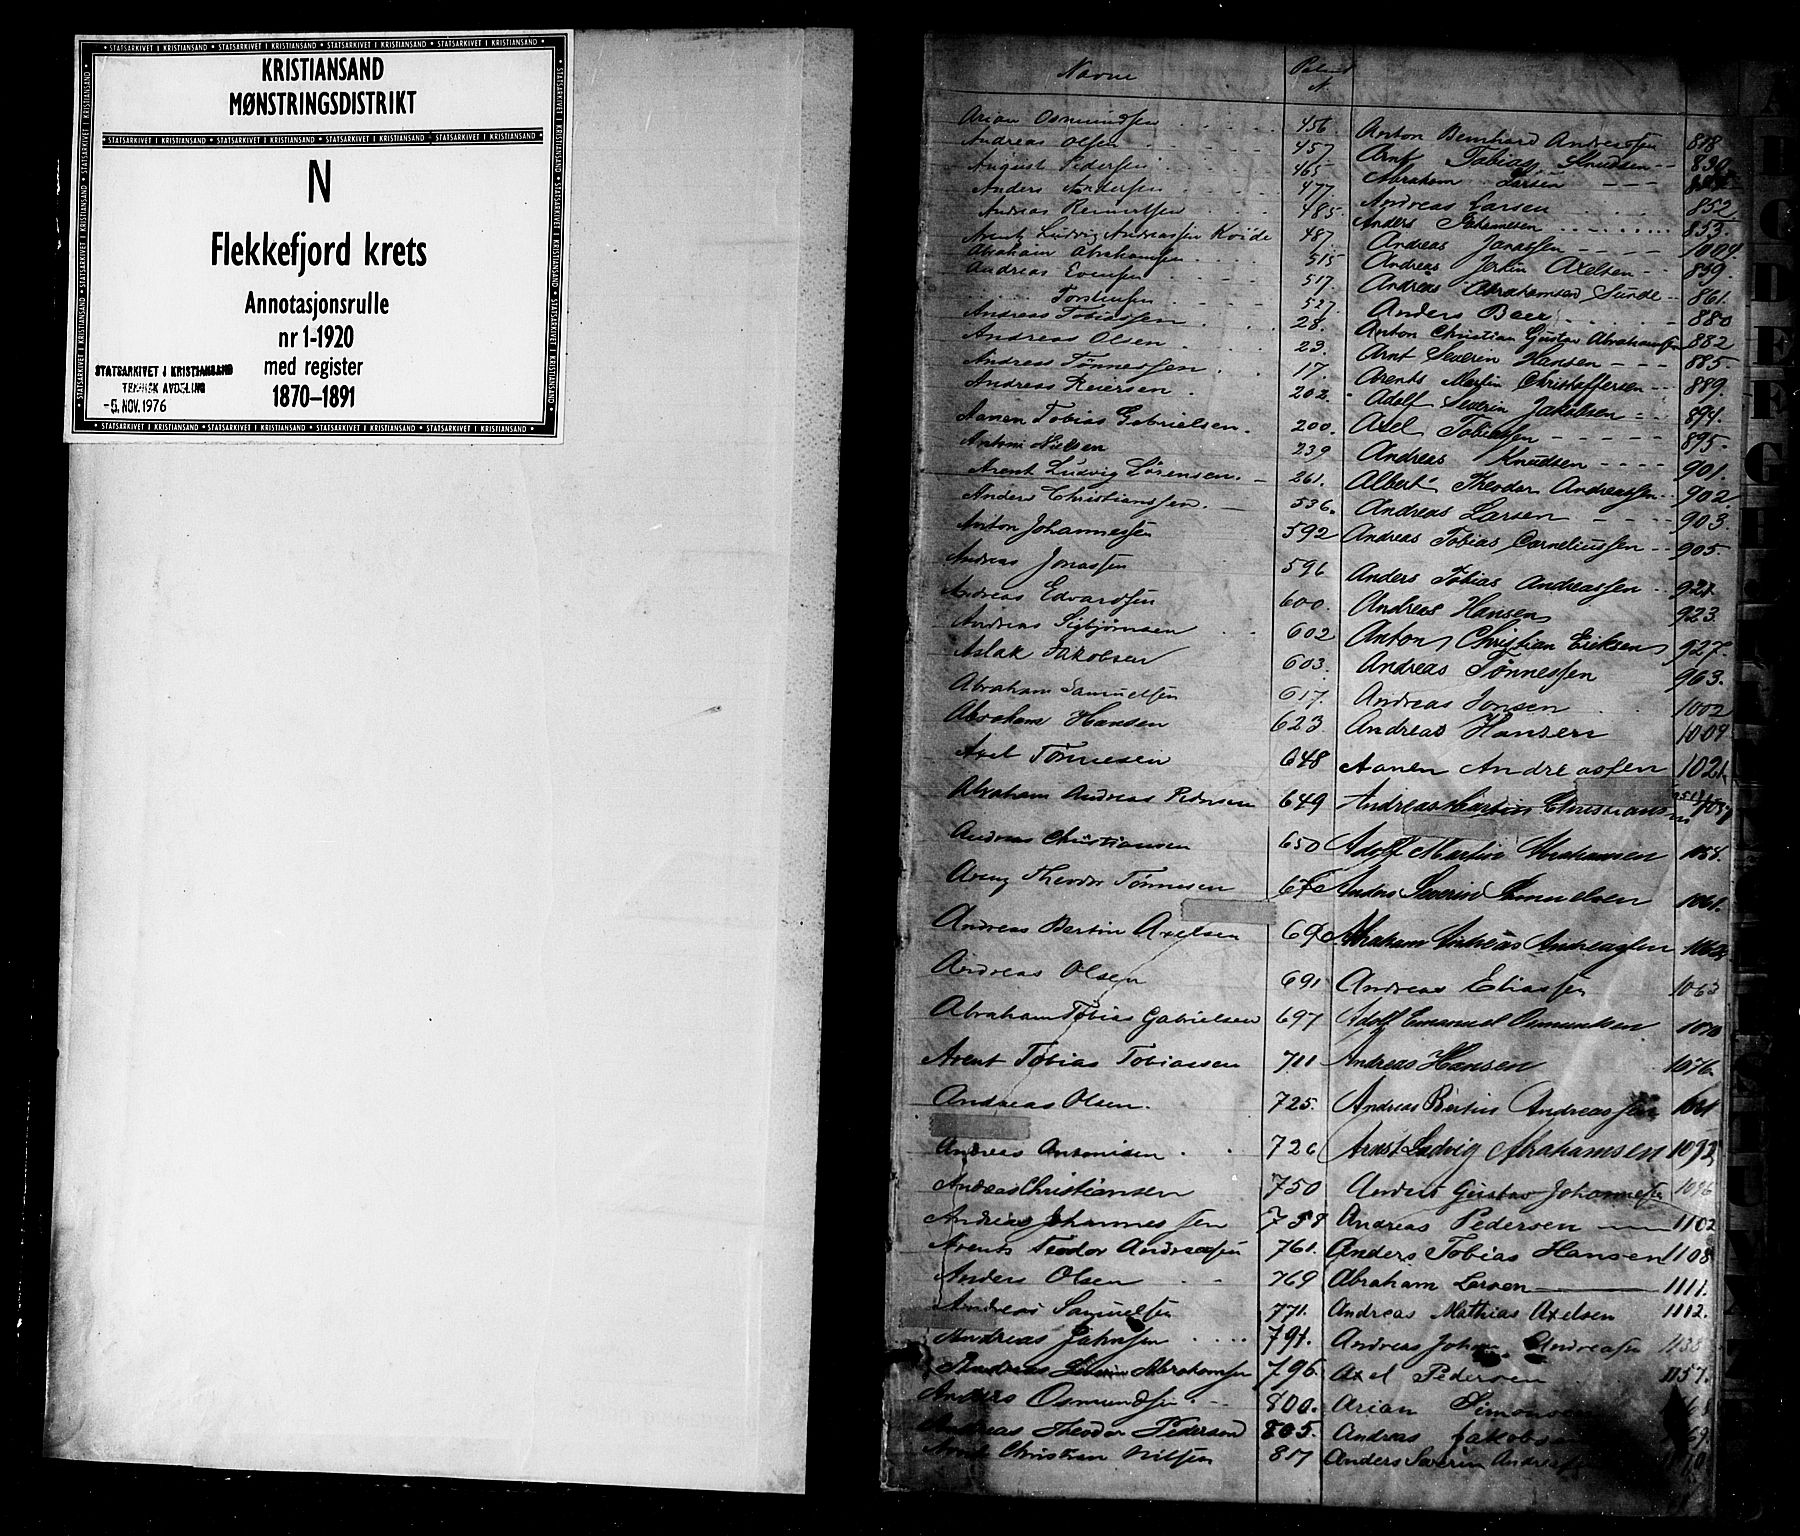 STATSARKIVET I KRISTIANSAND
KRISTIANSAND
MØNSTRINGSDISTRIKT
N
Flekkefjord krets
Annotasjonsrulle
nr 1-1920
med register
1870–1891
STATSARKIVET I KRISTIANSAND
TEKNISK AVDELING
-5. NOV. 1976
Navne
Arian Osmundsen 456
Andreas Olsen 457
August Pedersen 465
Anders Andersen 477
Andreas Reinertsen 485
Arent Ludvig Andreassen 487
Abraham Abrahamsen 515
Andreas Evensen 517
Torstensen 527
Andreas Tobiassen 28.
Andreas Olsen 23.
Andreas Tønnessen 17.
Andreas Reiersen 202.
Aanen Tobias Gabrielsen 200.
Antoni Nielsen 239
Arent Ludvig Sørensen 261.
Anders Christianssen 536.
Anton Johannessen 592
Andreas Jonassen 596
Andreas Edvardsen 600.
Andreas Sigbjørnsen 602
Aslak Jakobsen 603.
Abraham Samuelsen 617.
Abraham Hansen 623
Axel Tønnesen 648
Abraham Andreas Pedersen 649
Andreas Christiansen 650
Theodor Tønnesen
Andreas Bertin Axelsen
Andreas Olsen 691
Abraham Tobias Gabrielsen 697
Arent Tobias Tobiassen 711
Andreas Olsen. 725.
Andreas Antonisen 726
Andreas Christiansen 750
Andreas Johannessen 758
Arents Teodor Andreassen 761.
Anders Olsen 769
Andreas Samuelsen 771.
Andreas Jahnsen 791.
Andreas Abrahamsen 796.
Anders Osmundsen 800.
Andreas Theodor Pedersen 805.
Christian Nilsen 817
Anton Bernhard Andreassen 818
Arnt Tobias Knudsen
Abraham Larsen
Andreas Larsen 852
Anders Johannesen 853.
Andreas Jonassen 1004.
Andreas Axelsen 859.
Andreas Abrahamsen Sunde 861.
Anders Beer 880
Anton Christian Gustav Abrahamsen 882
Arnt Severin Hansen 885.
Arents Martin Christoffersen 889.
Adolf Severin Jakobsen 894.
Axel Tobiassen 895.
Andreas Knudsen 901.
Albert Theodor Andreassen 902
Andreas Larsen 903
Andreas Tobias Corneliussen 905.
Anders Tobias Andreassen 921
Andreas Hansen 923.
Anton Christian Eriksen 927
Andreas Tønnessen 963.
Andreas Jonsen 1002
Andreas Hansen 1009
Aanen Andreassen 1021
Andreas Martin Christiansen
Adolf Martin Abrahamsen 1058.
Anders Severin Samuelsen 1061.
Abraham Andreas Andreassen 1062
Andreas Eliassen 1063
Adolf Emanuel Osmundsen 1070
Andreas Hansen 1076
Andreas Bertin Andreassen
Ludvig Abrahamsen 1092
Anders Gustav Johannessen 1096
Andreas Pedersen 1102
Anders Tobias Hansen 1108
Abraham Larsen 1111.
Andreas Mathias Axelsen 1112.
Andreas Johan Andreassen 1138
Axel Pedersen 1157.
Arian Simonsen
Andreas Jakobsen
Anders Severin